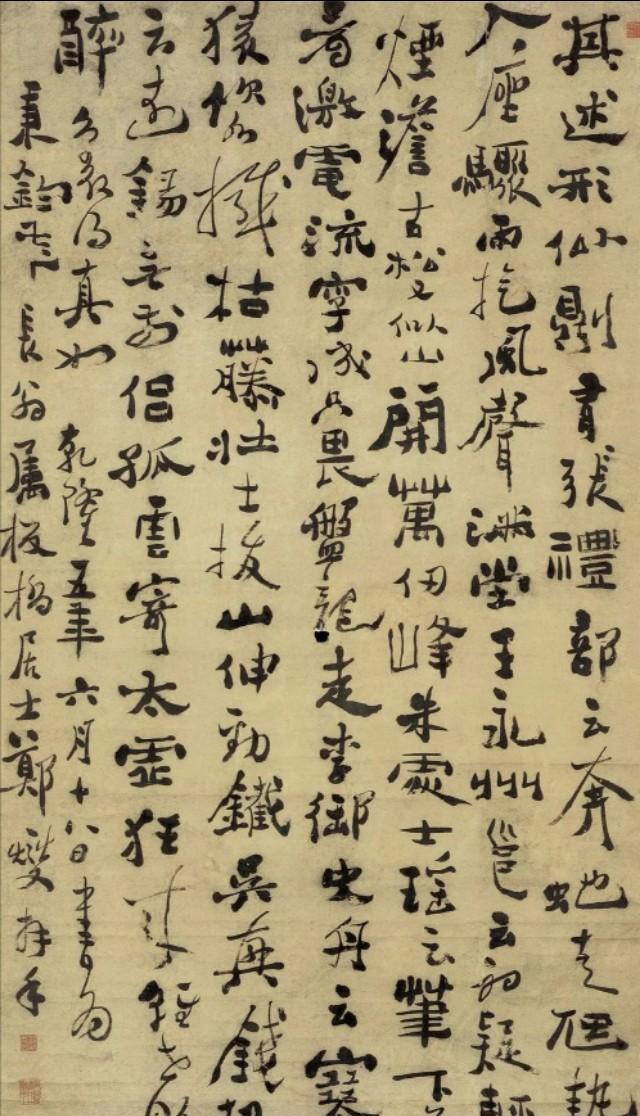 其述形似則有張禮部云奔虵走虺勢
入座驟雨旋風聲滿堂王永州邕云初疑輕
煙澹古松又似山開萬仞峰朱處士瑤云筆下
看激電流字成只畏盤龍走李御史舟云寒
猿飲水撼枯藤壯士拔山伸勁鐵吳興錢起
云遠錫無前侶孤雲寄太虛狂來輕世界
醉得真如 乾隆五年六月十八日書為
秉鈞老長翁屬 板橋居士鄭燮